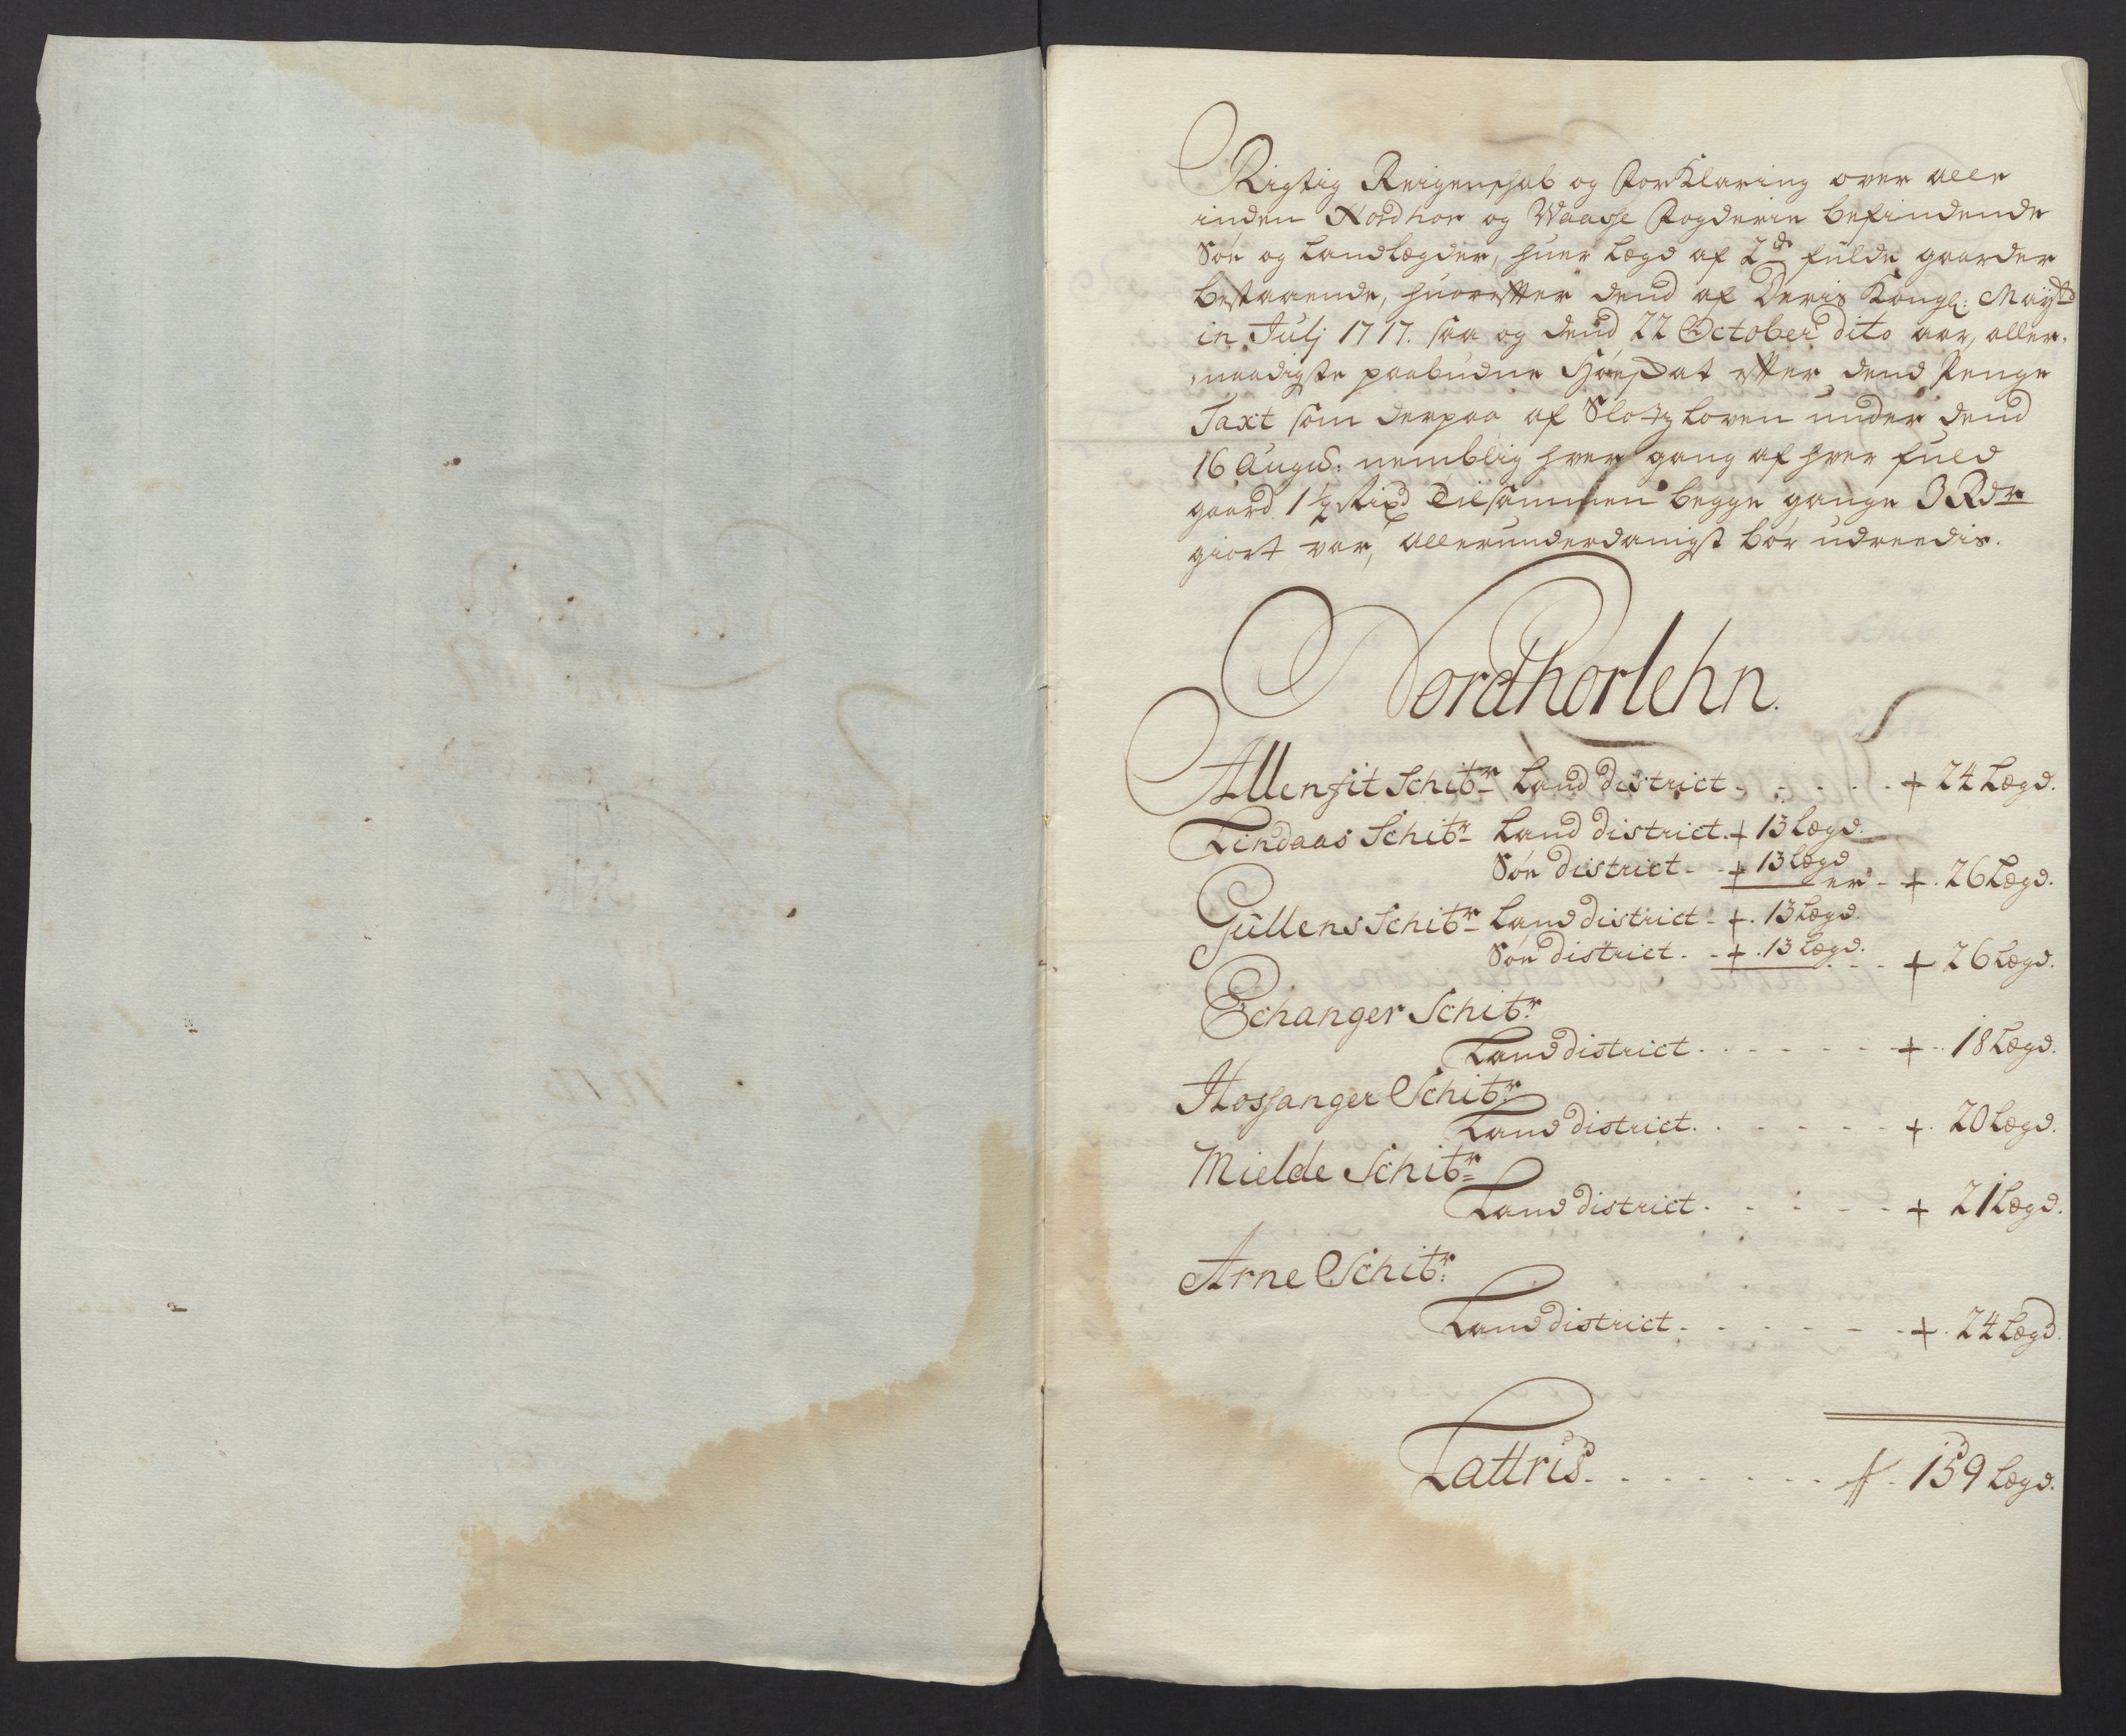 Rigtig Reigenschab og Forklaring over alle
inden Nordhor og Waasse Fogderie befindende
Søe og Landlægder, huer Lægd af 2de fulde gaarder
bestaaende, huorefter dend af Deris Kongl: Mayts
in Julj 1717. saa og dend 22 October dito aar, aller-
naadigste paabudne Høe Skat efter dend Penge
Taxt som derpaa af Slotzloven under dend
16 Augus: nemblig hver gang af hver fuld
gaard 1½ Rixd Tilsammen begge gange 3 Rdr
giort var, allerunderdanigst bør udreedis.
Nordhorlehn.
Allenfit Schibr Land district - - - - + 24 Lægd.
Lindaas Schibr Land district. + 13 Lægd.
Søe district - - + 13 Lægd er - + 26 Lægd.
Gullens Schibr Land district - + 13 Lægd.
Søe district - - + 13 Lægd. - - + 26 Lægd.
Echanger Schibr
Land district - - - - - - + 18 Lægd.
Hossanger Schibr
Land district. - - - - - + 20 Lægd.
Mielde Schibr
Land district - - - - - + 21 Lægd.
Arne Schibr:
Land district - - - - - - + 24 Lægd.
Lattris. - - - - - - - 159 Lægd.